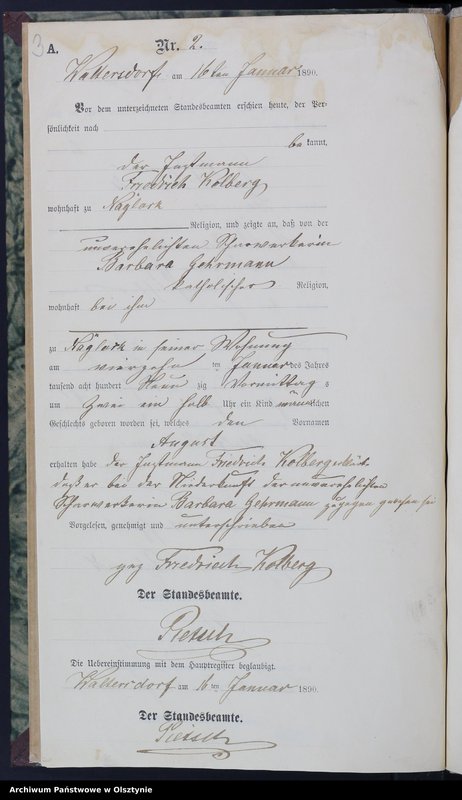 3
A.
Nr. 2.
Waltersdorf am 16ten Januar 1890.
Vor dem unterzeichneten Standesbeamten erschien heute, der Per-
sönlichkeit nach
bekannt,
der Instmann
Friedrich Kolberg
wohnhaft zu Naglack
Religion, und zeigte an, daß von der
unverehelichten Scharwerkerin
Barbara Gehrmann
katholischer Religion,
wohnhaft bei ihm
zu Naglack in seiner Wohnung
am vierzehn ten Januar des Jahres
tausend acht hundert Neun zig Vormittag s
um zwei ein halb Uhr ein Kind männlichen
Geschlechts geboren worden sei, welches den Vornamen
August
erhalten habe der Instmann Friedrich Kolberg erklärte
daß er bei der Niederkunft der unverehelichten
Scharwerkerin Barbara Gehrmann zugegen gewesen sei
Vorgelesen, genehmigt und unterschrieben
gez Friedrich Kolberg
Der Standesbeamte.
Pietsch
Die Uebereinstimmung mit dem Hauptregister beglaubigt.
Waltersdorf am 16 ten Januar 1890.
Der Standesbeamte.
Pietsch
Archiwum Państwowe w Olsztynie